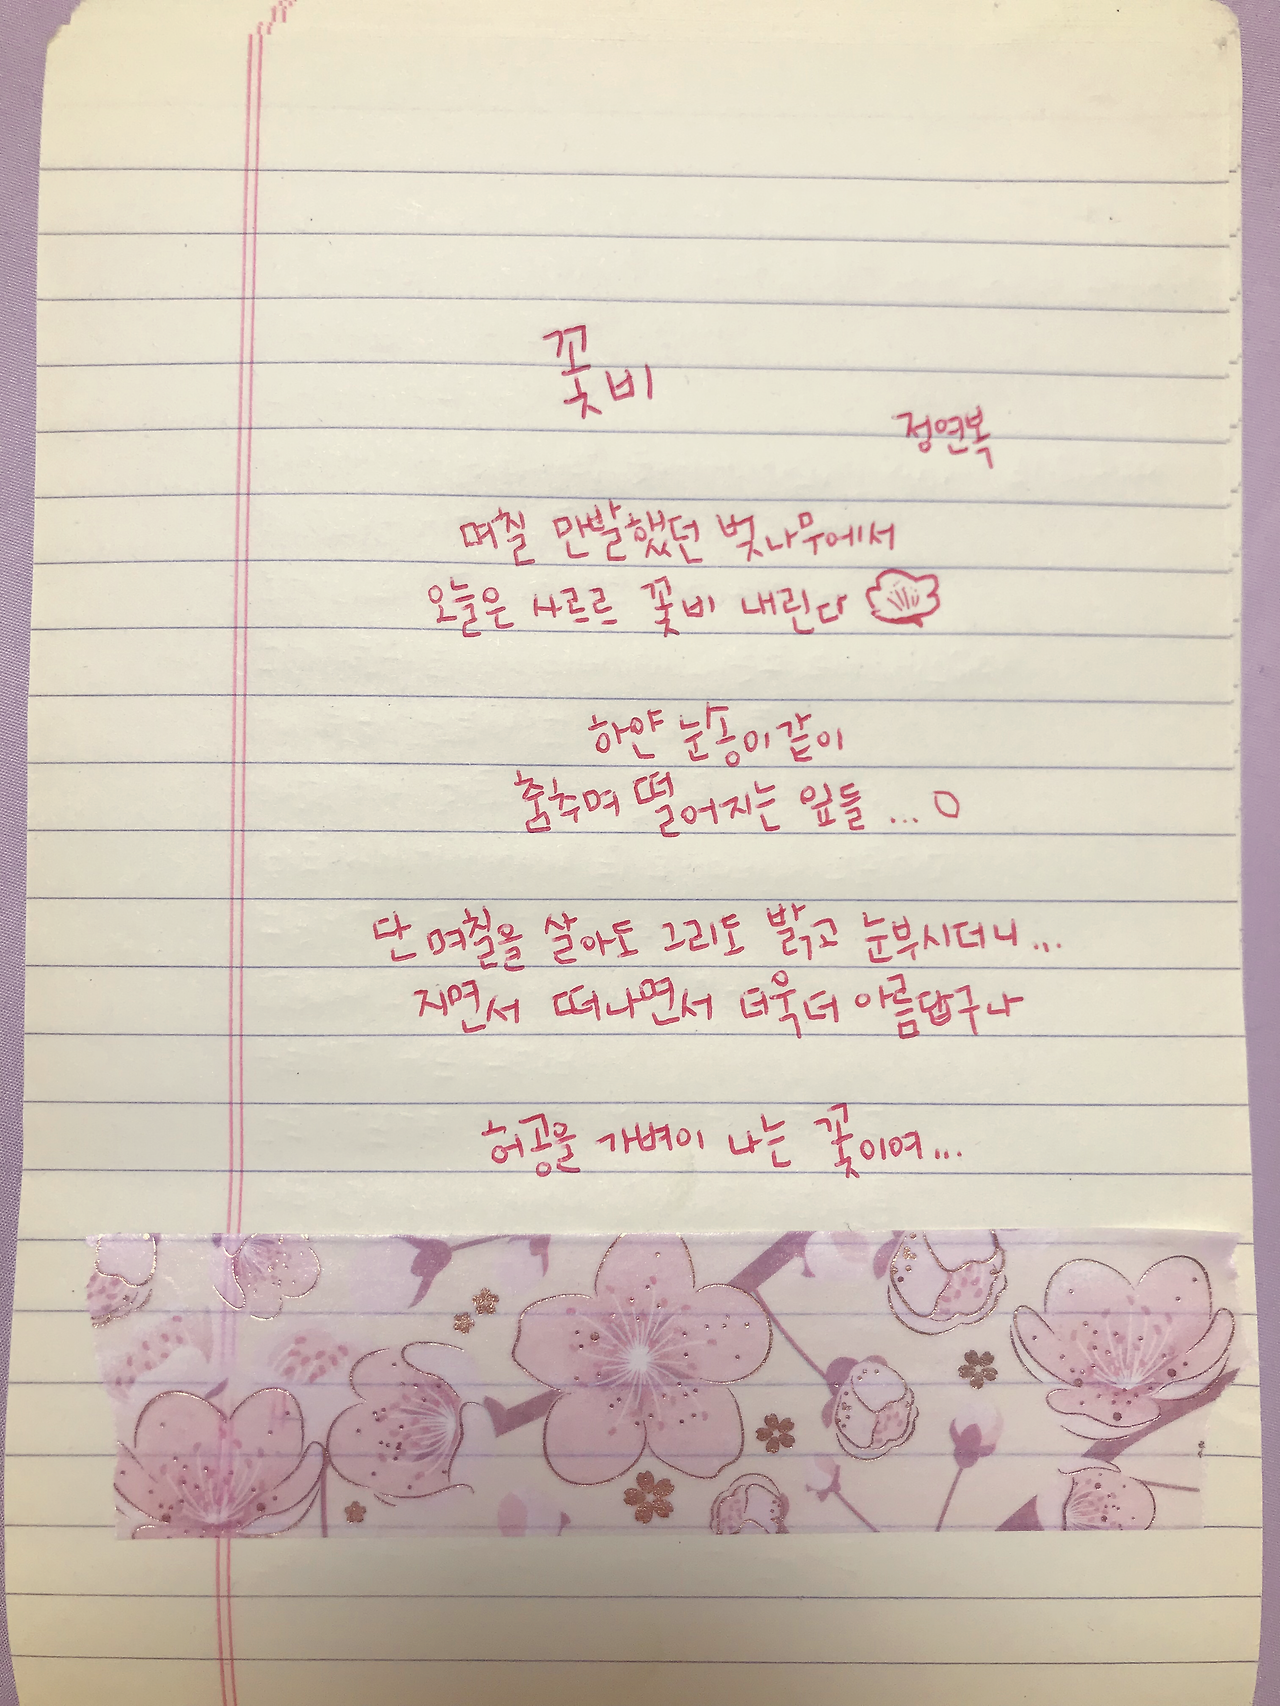 꽃비
정연복
며칠 만발했던 벚나무에서
오늘은 사르르 꽃비 내린다
하얀 눈송이같이
춤추며 떨어지는 잎들...
단 며칠을 살아도 그리도 밝고 눈부시더니...
지면서 떠나면서 더욱더 아름답구나
허공을 가벼이 나는 꽃이여...